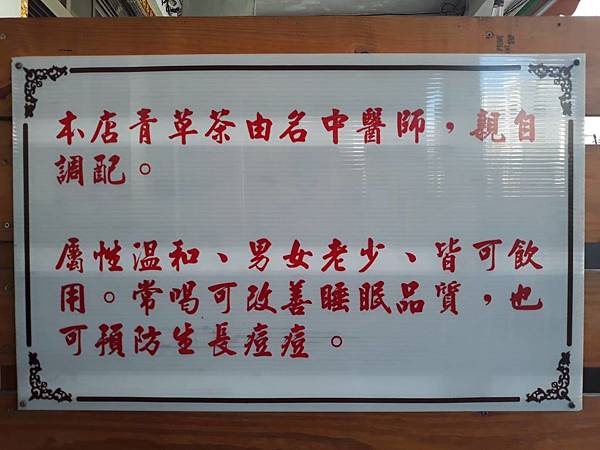 本店青草茶由名中醫師，親自
調配。
屬性溫和、男女老少、皆可飲
用。常喝可改善睡眠品質，也
可預防生長痘痘。